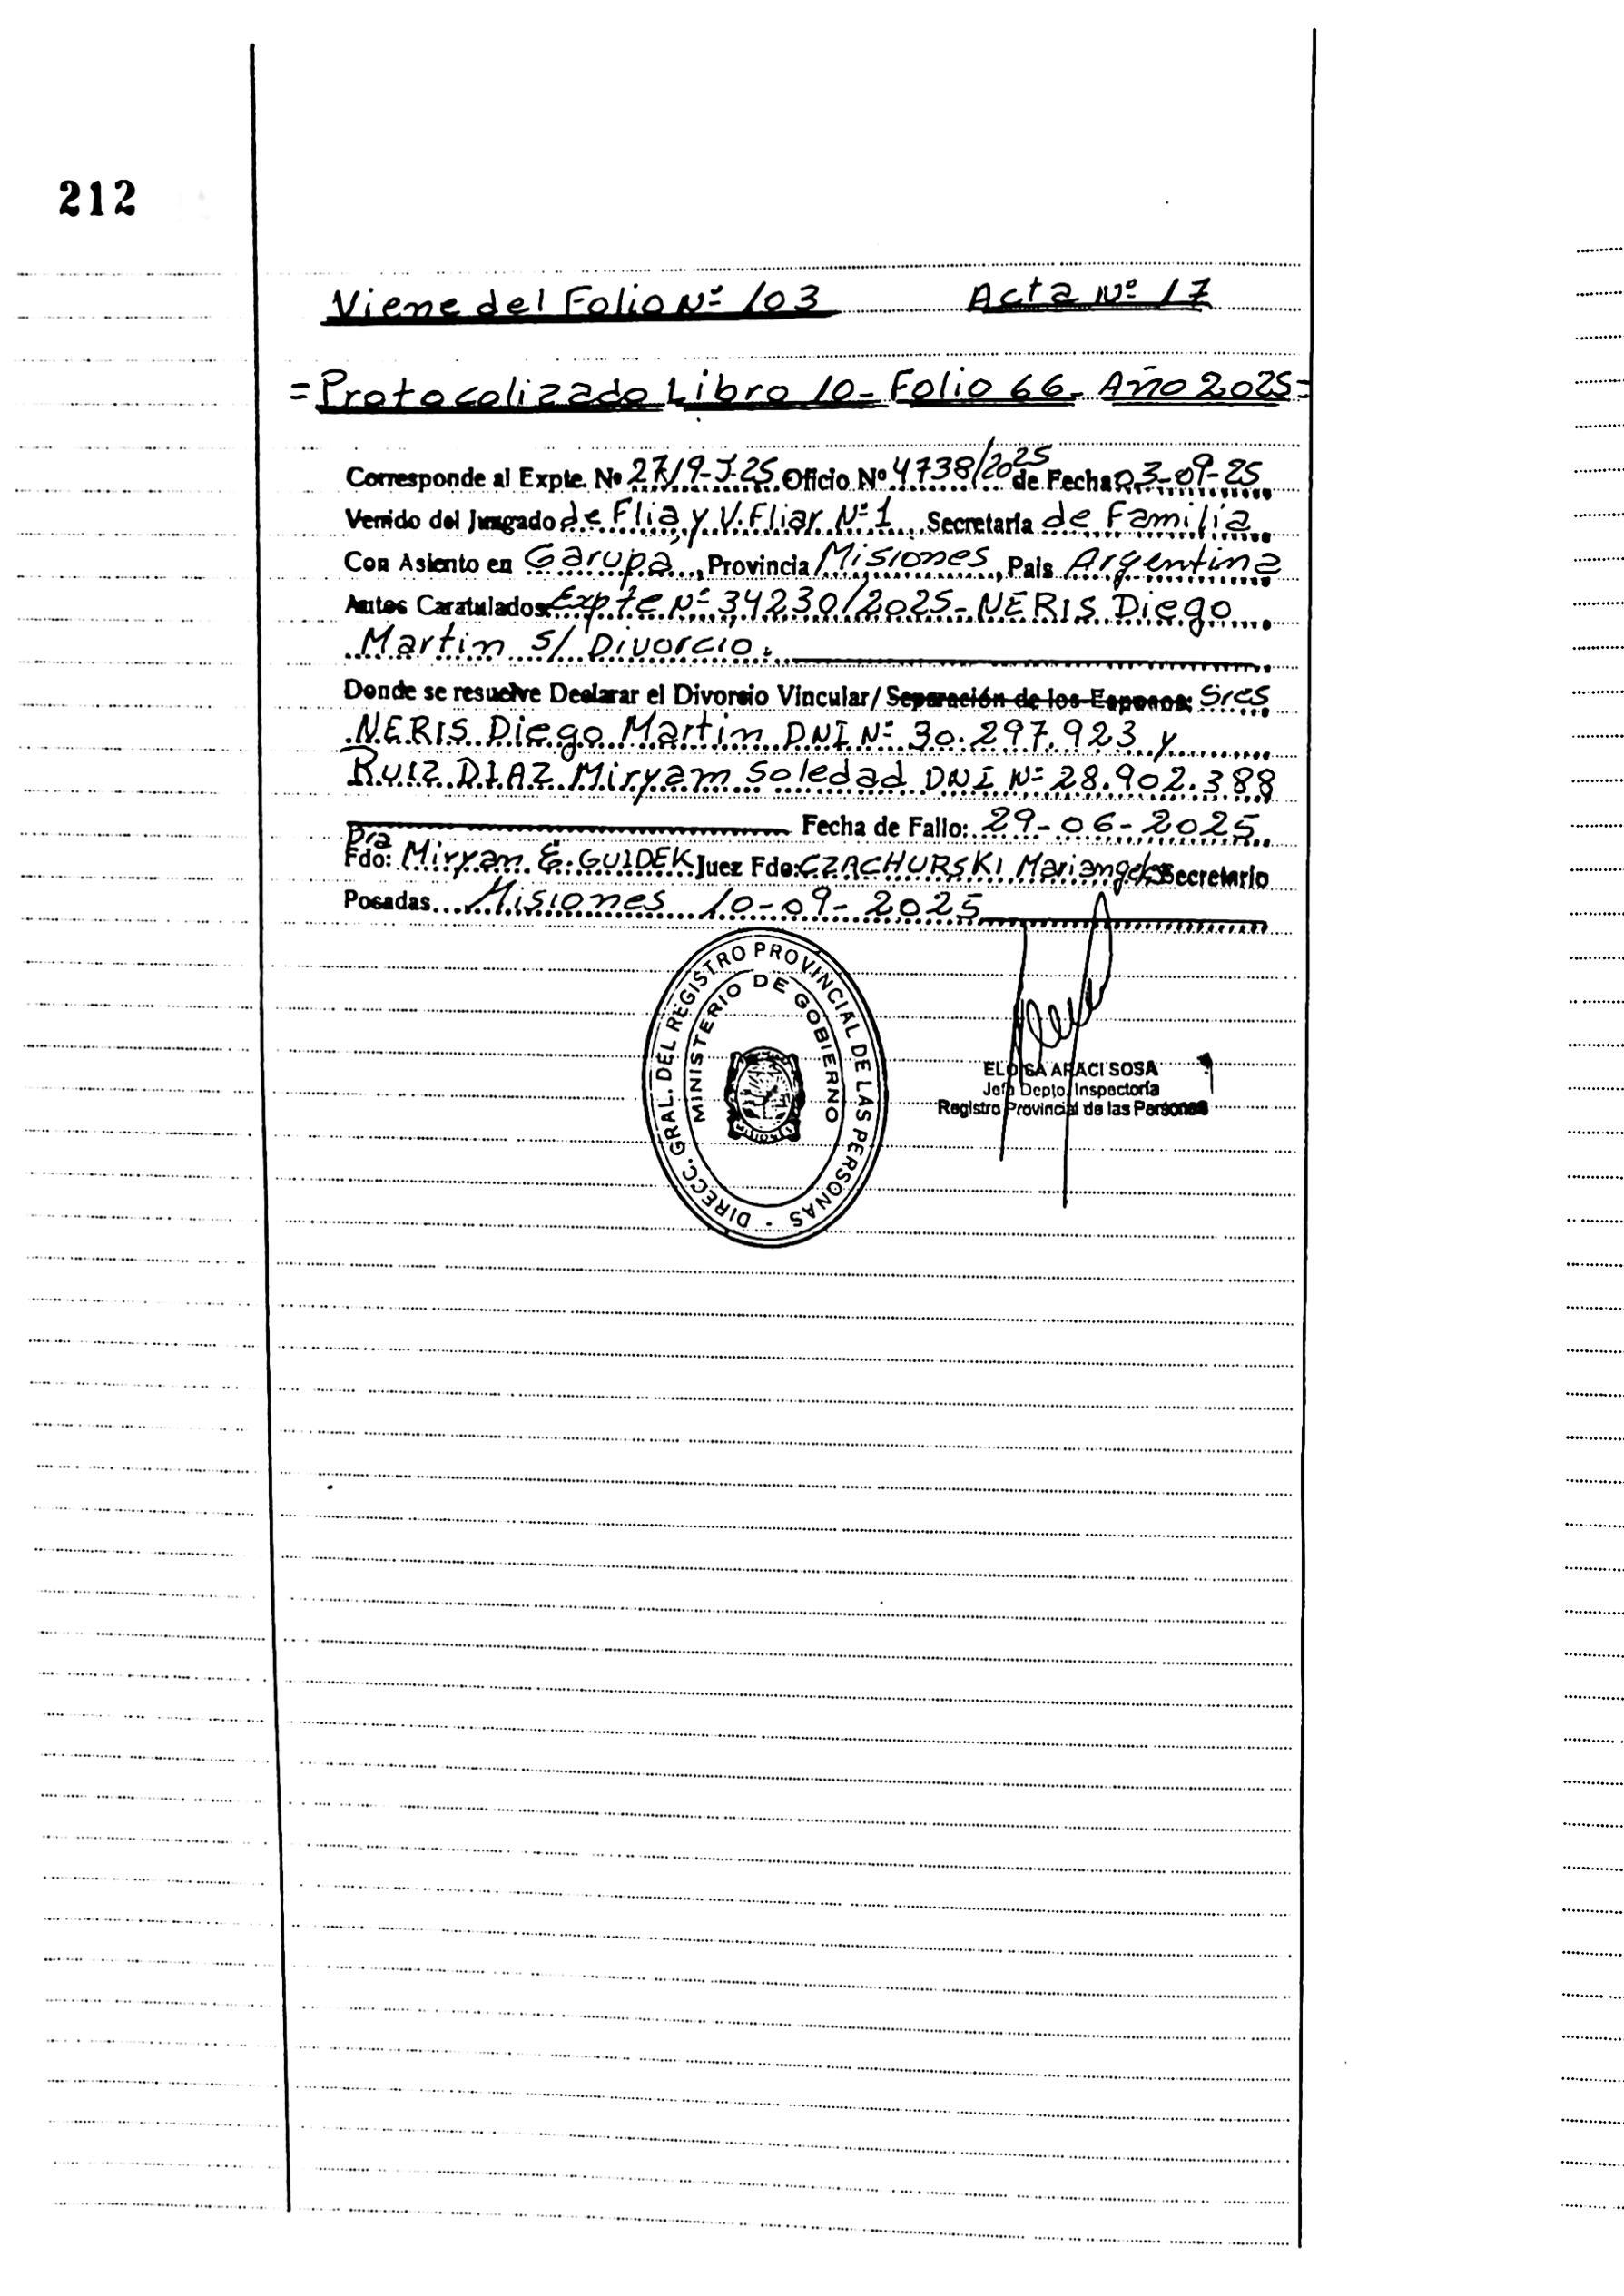 212
Viene del Folio Nº 103 Acta Nº 17
=Protocolizado Libro 10- Folio 66- Año 2025=
Corresponde al Expte. Nº 2719-J-25 Oficio Nº 4738/2025 de Fecha 03-09-25
Venido del Juzgado de Flia, y V. Fliar Nº 1 Secretaría de Familia
Con Asiento en Garupa, Provincia Misiones, País Argentina
Autos Caratulados: Expte Nº 34230/2025- NERIS Diego
Martin s/ Divorcio.
Donde se resuelve Declarar el Divorcio Vincular/ Separación de los Esposos: Sres
NERIS Diego Martin DNI Nº 30.297.923 y
RUIZ DIAZ Miryam Soledad DNI Nº 28.902.388
Fecha de Fallo: 29-06-2025
Dra
Fdo: Miryam E. GUIDEK Juez Fdo: CZACHURSKI Mariangeles Secretario
Posadas Misiones 10-09-2025
DIRECC. GRAL. DEL REGISTRO PROVINCIAL DE LAS PERSONAS -
MINISTERIO DE GOBIERNO
ELOISA ARACI SOSA
Jefa Depto. Inspectoría
Registro Provincial de las Personas